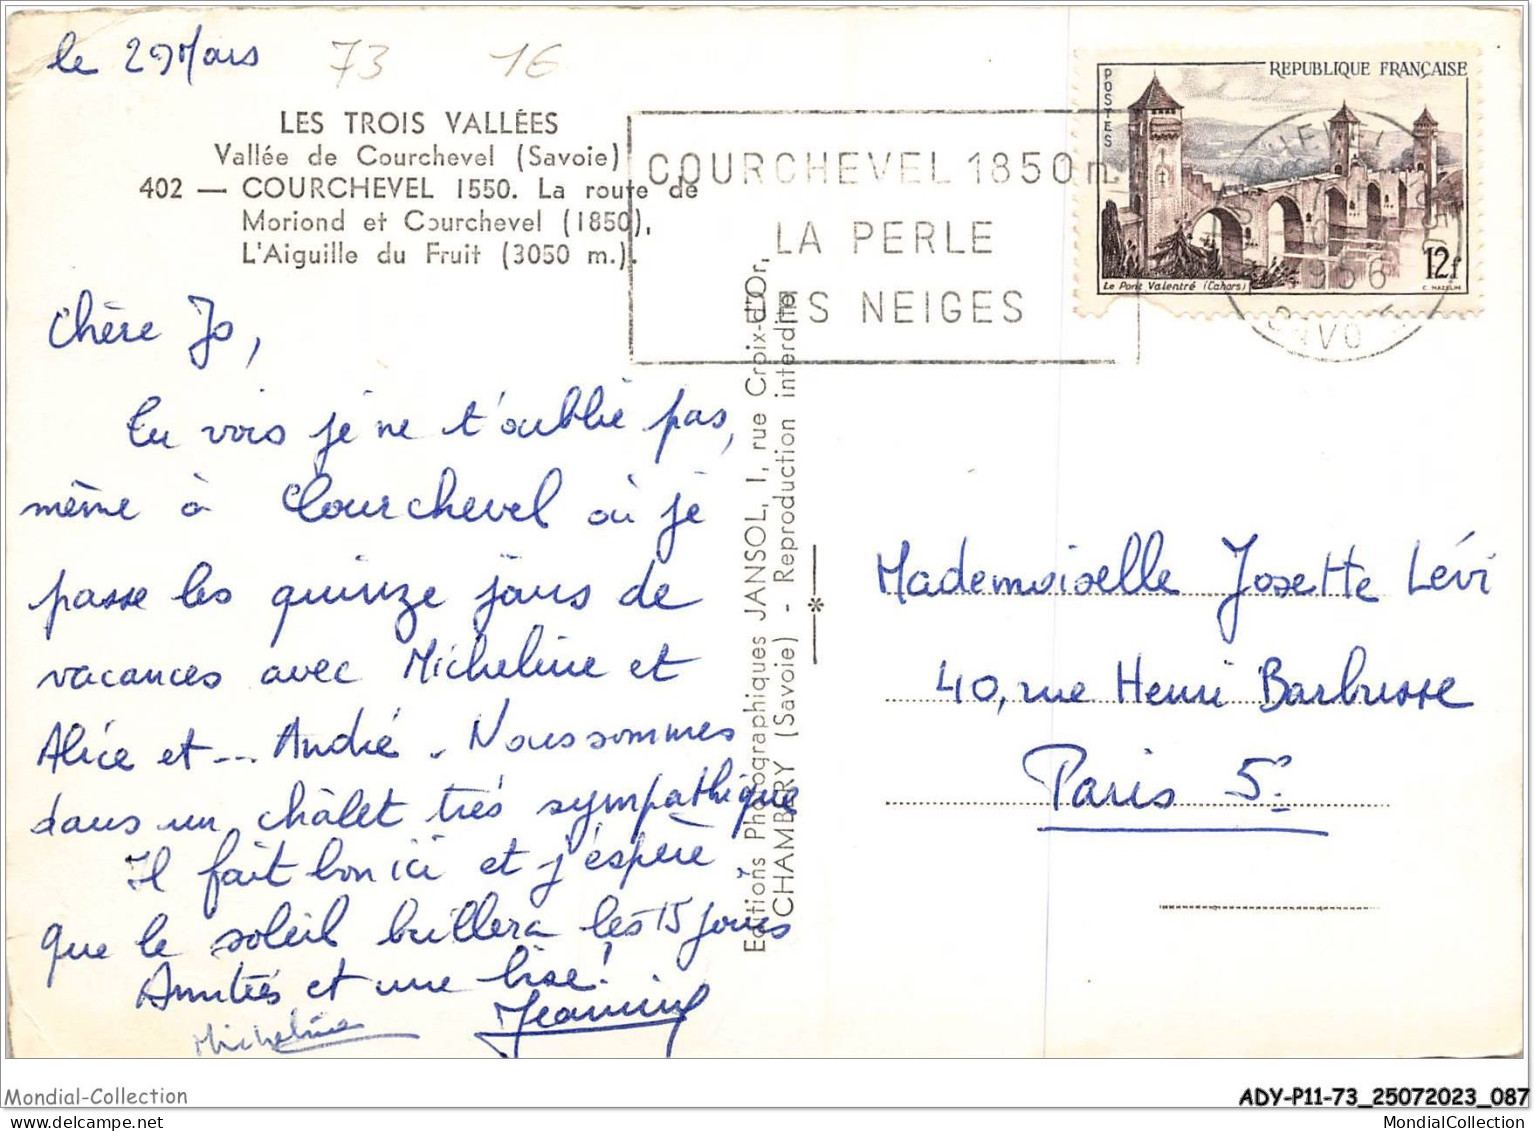 le 29 Mars
73 16
LES TROIS VALLÉES
Vallée de Courchevel (Savoie)
402 — COURCHEVEL 1550. La route de
Moriond et Courchevel (1850).
L'Aiguille du Fruit (3050 m.).
COURCHEVEL 1850 m.
LA PERLE
DES NEIGES
POSTES
REPUBLIQUE FRANÇAISE
Le Pont Valentré (Cahors)
12f
C. MAZELIN
1956
Chère Jo,
Tu vois je ne t'oublie pas,
même à Courchevel où je
passe les quinze jours de
vacances avec Micheline et
Alice et... André. Nous sommes
dans un châlet très sympathique
Il fait bon ici et j'espère
que le soleil brillera les 15 jours
Amitiés et une bise!
Jeannine
Micheline
Editions Photographiques JANSOL, 1, rue Croix-d'Or,
CHAMBÉRY (Savoie) - Reproduction interdite
Mademoiselle Josette Lévi
40, rue Henri Barbusse
Paris 5e
Mondial-Collection
ADY-P11-73_25072023_087
MondialCollection